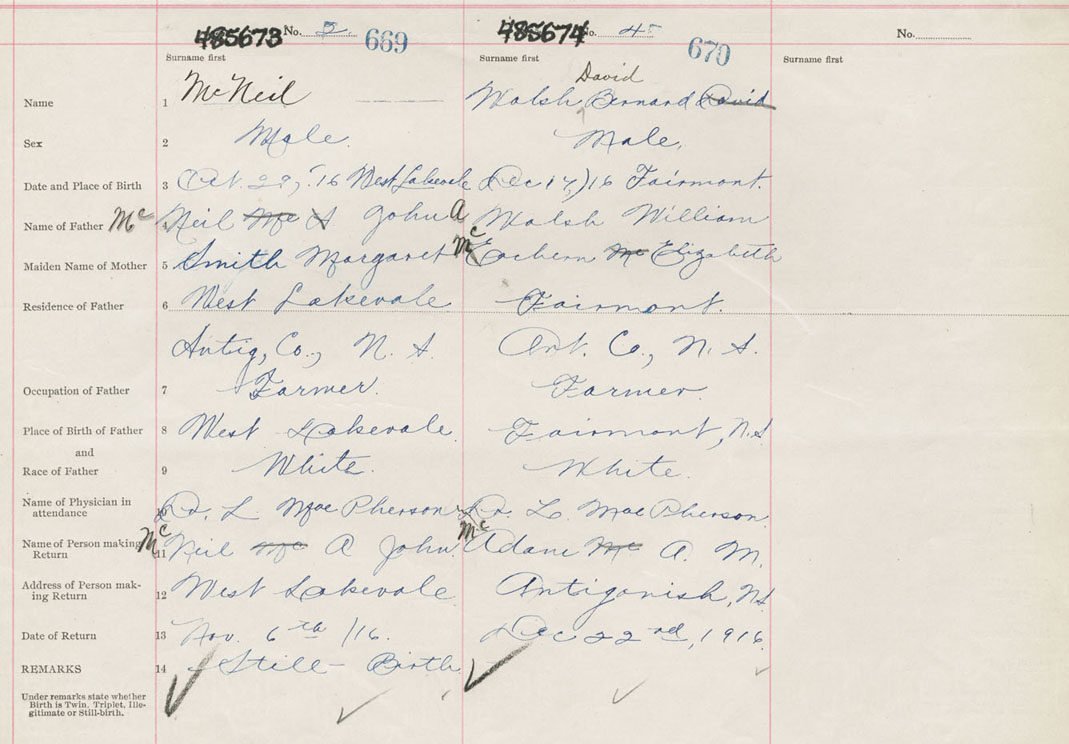 485673 No. 2 669 485674 No. 45 670 No.
Surname first Surname first Surname first
David
Name 1 McNeil Walsh Bernard David
Sex 2 Male. Male.
Date and Place of Birth 3 Oct. 29, '16 West Lakevale Dec 17, /16 Fairmont.
Name of Father 4 Mc Neil Mc A John A Walsh William
Maiden Name of Mother 5 Smith Margaret Mc Eachern Mc Elizabeth
Residence of Father 6 West Lakevale Fairmont.
Antig, Co., N. S. Ant. Co., N. S.
Occupation of Father 7 Farmer. Farmer.
Place of Birth of Father 8 West Lakevale. Fairmont, N.S
and
Race of Father 9 White. White.
Name of Physician in
attendance 10 Dr. L. MacPherson Dr. L. MacPherson.
Name of Person making
Return 11 Mc Neil Mc A John. Mc Adam Mc A. M.
Address of Person mak-
ing Return 12 West Lakevale Antigonish, NS
Date of Return 13 Nov. 6th /16. Dec 22nd, 1916.
REMARKS 14 Still-Birth
Under remarks state whether
Birth is Twin, Triplet, Ille-
gitimate or Still-birth.